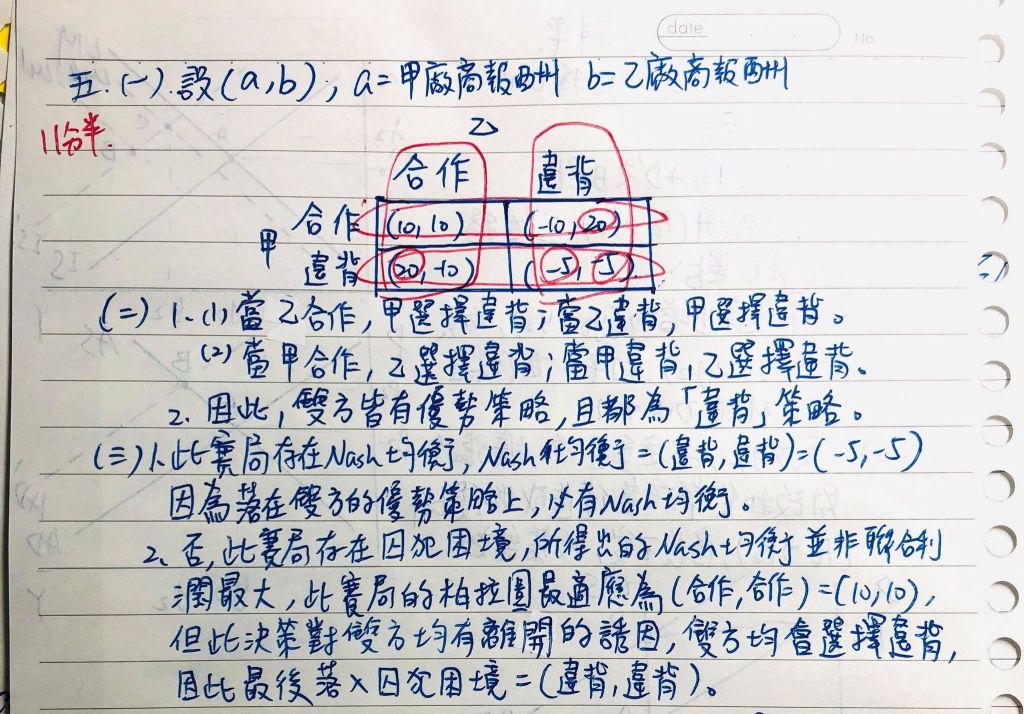 date
No.
五.(一).設(a,b), a=甲廠商報酬州 b=乙廠商報酬州
11分半.
乙
合作 違背
合作 (10,10) (-10,20)
甲
違背 (20,-10) (-5,-5)
(二) 1.(1)當乙合作,甲選擇違背;當乙違背,甲選擇違背。
(2)當甲合作,乙選擇違背;當甲違背,乙選擇違背。
2.因此,雙方皆有優勢策略,且都為「違背」策略。
(三)1.此賽局存在Nash均衡,Nash均衡=(違背,違背)=(-5,-5)
因為落在雙方的優勢策略上,必有Nash均衡。
2.否,此賽局存在囚犯困境,所得出的Nash均衡並非聯合利
潤最大,此賽局的柏拉圖最適應為(合作,合作)=(10,10),
但此決策對雙方均有離開的誘因,雙方均會選擇違背,
因此最後落入囚犯困境=(違背,違背)。